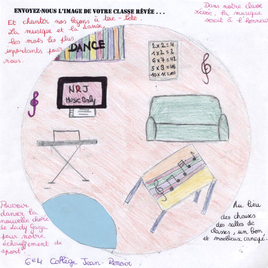 ENVOYEZ-NOUS L'IMAGE DE VOTRE CLASSE RÊVÉE . . .
Et chanter nos leçons à tue-tête.
La musique et la danse,
les mots les plus
importants pour
nous.
Dans notre classe
rêvée, la musique
serait à l'honneur
DANCE
NRJ
Music Only
1 x 2 = 2
Pouvoir
danser la
nouvelle choré
de Lady Gaga
pour notre
échauffement de
sport
Au lieu
des chaises
des salles de
classes, un bon
et moelleux canapé.
6e4 Collège Jean Renoir